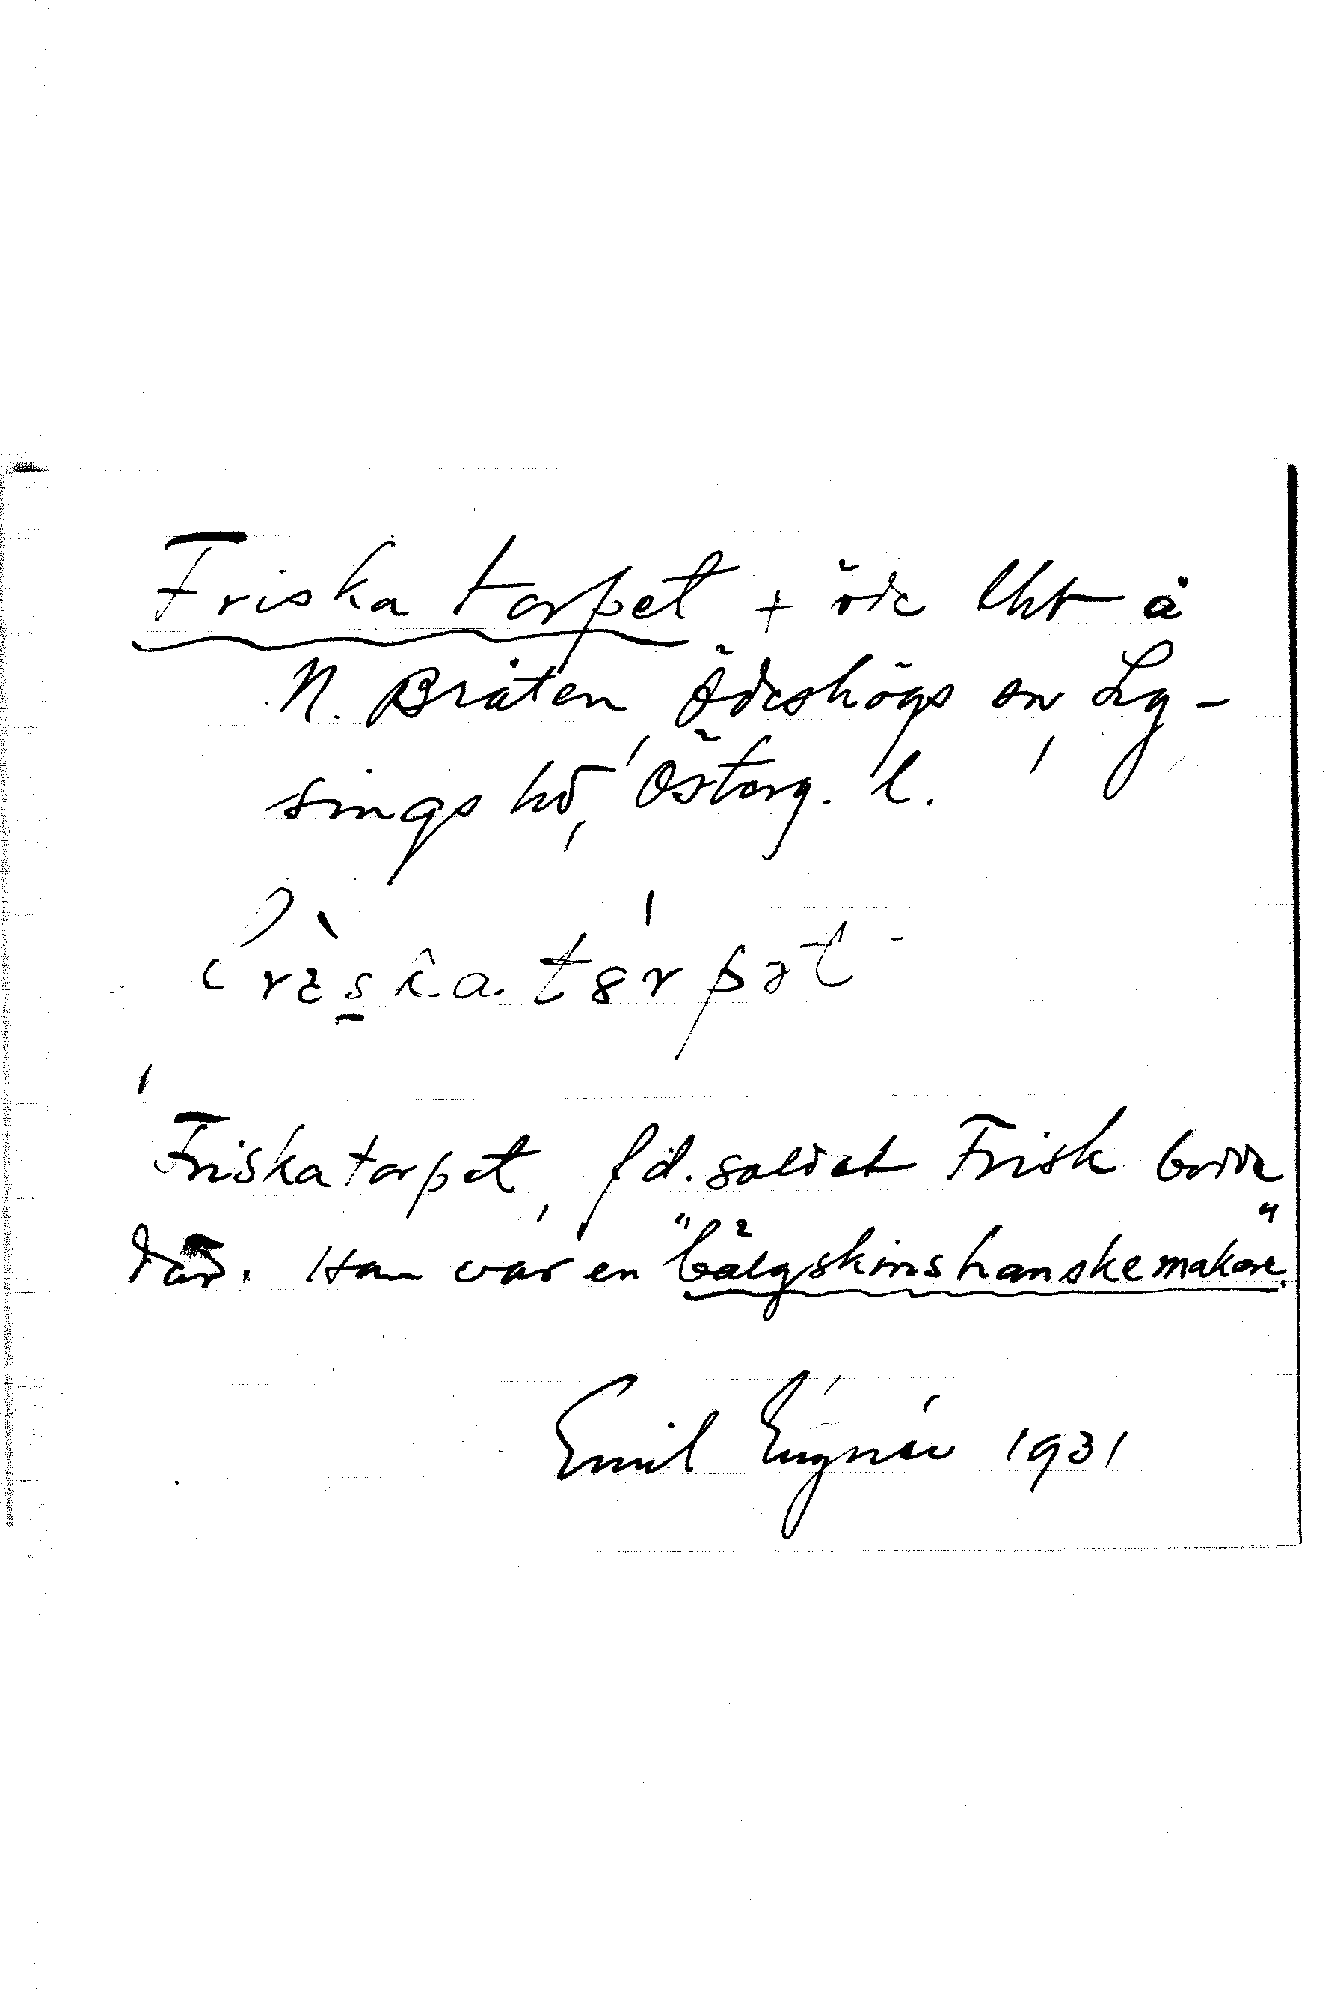 Friskatorpet + öde lht å
N. Bråten, Ödeshögs sn, Ly-
sings hd, Österg. l.
Friskatorpet, f d. soldat Frisk bodde
där. Han var en "bälgskinshanskemakare".
Emil 1931